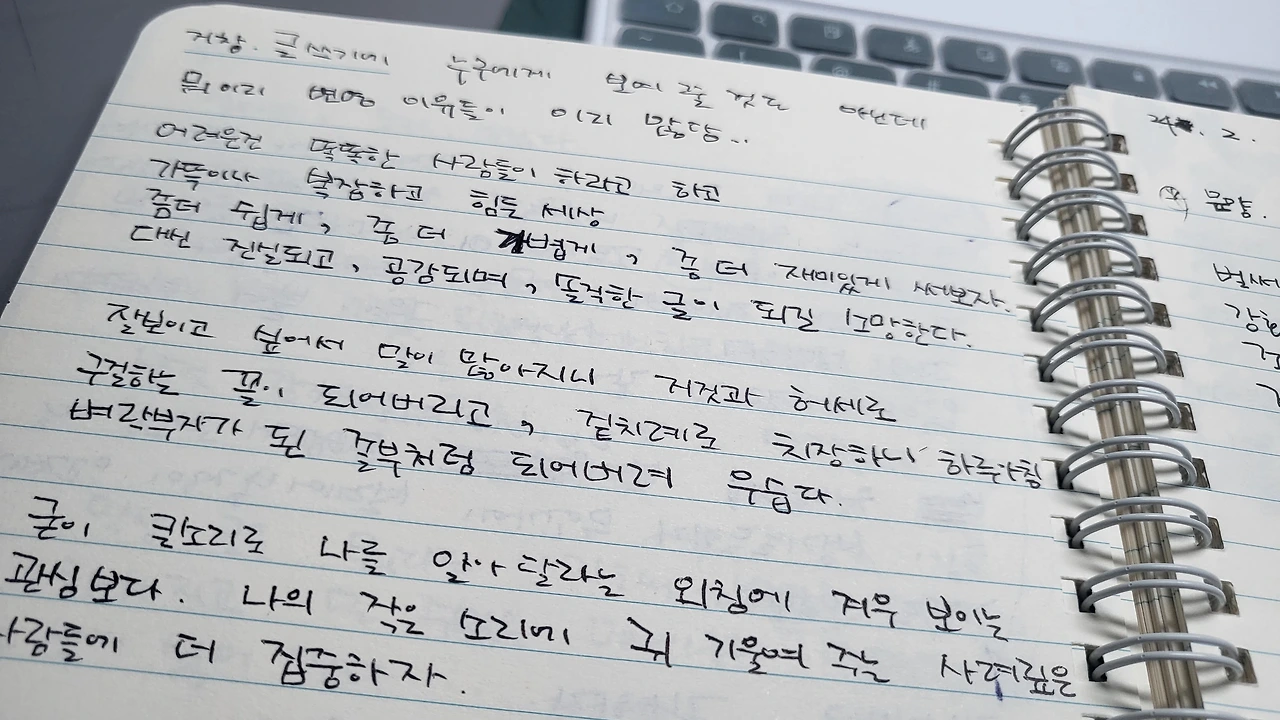 거창. 글쓰기에 누구에게 보여 줄 것도 아닌데
뭐 이리 변명 이유들이 이리 많담..
어려운건 똑똑한 사람들이 하라고 하고
가뜩이나 복잡하고 힘든 세상
좀더 쉽게, 좀 더 가볍게, 좀 더 재미있게 써보자.
대신 진실되고, 공감되며, 솔직한 글이 되길 소망한다.
잘보이고 싶어서 말이 많아지니 거짓과 허세로
구걸하는 꼴이 되어버리고, 겉치레로 치장하니 하루아침
벼락부자가 된 졸부처럼 되어버려 우습다.
굳이 큰소리로 나를 알아 달라는 외침에 겨우 보이는
관심보다. 나의 작은 소리에 귀 기울여 주는 사려깊은
사람들에 더 집중하자.
2.
벌써